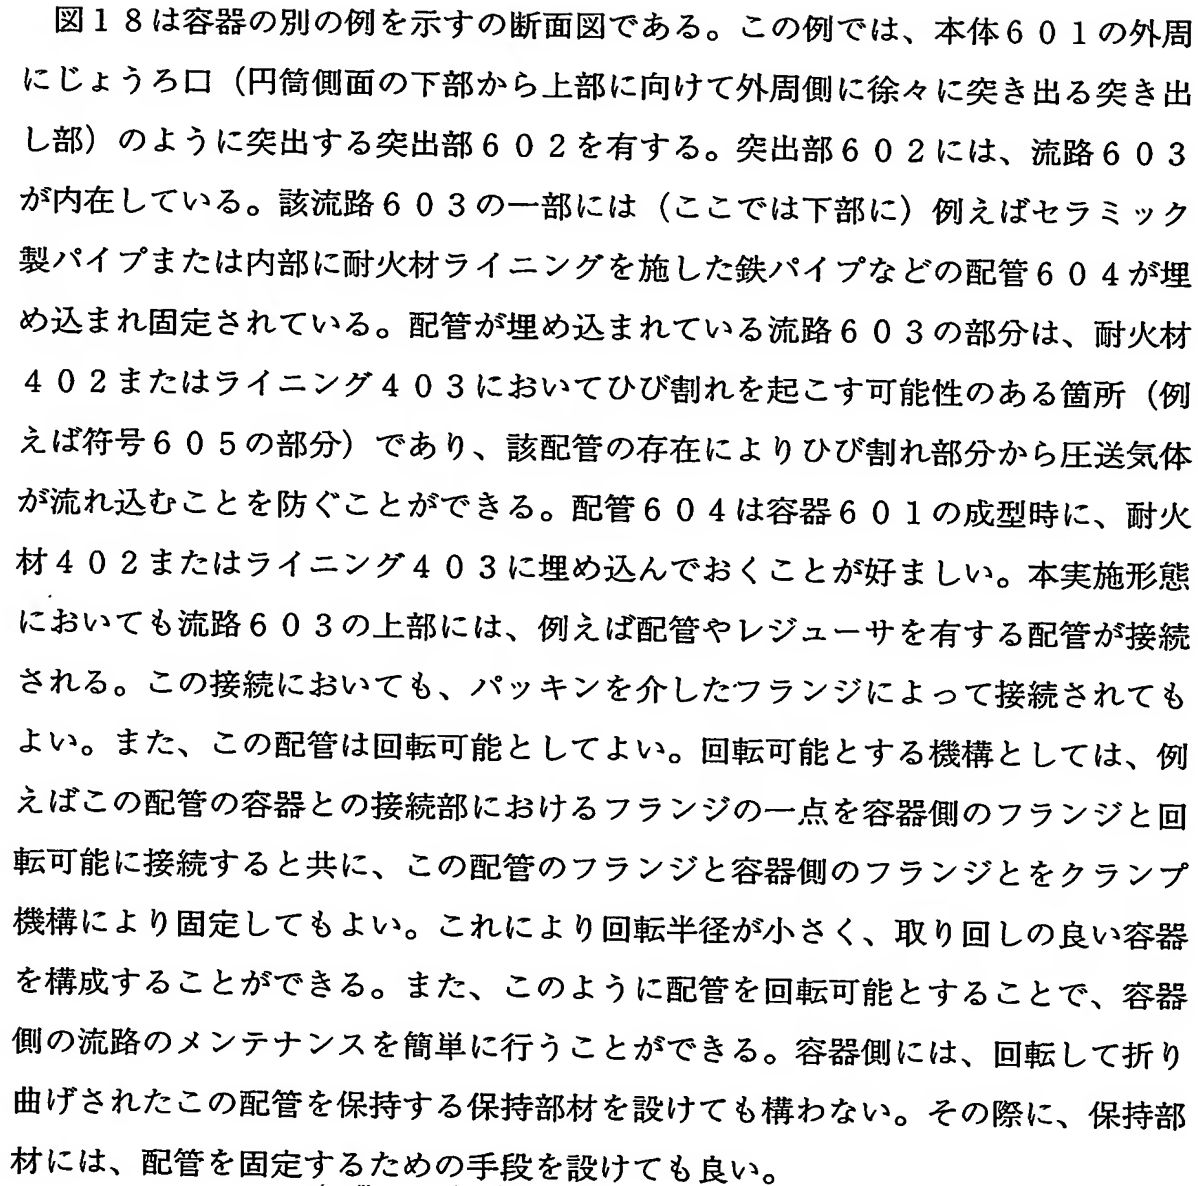 図18は容器の別の例を示すの断面図である。この例では、本体601の外周
にじょうろ口（円筒側面の下部から上部に向けて外周側に徐々に突き出る突き出
し部）のように突出する突出部602を有する。突出部602には、流路603
が内在している。該流路603の一部には（ここでは下部に）例えばセラミック
製パイプまたは内部に耐火材ライニングを施した鉄パイプなどの配管604が埋
め込まれ固定されている。配管が埋め込まれている流路603の部分は、耐火材
402またはライニング403においてひび割れを起こす可能性のある箇所（例
えば符号605の部分）であり、該配管の存在によりひび割れ部分から圧送気体
が流れ込むことを防ぐことができる。配管604は容器601の成型時に、耐火
材402またはライニング403に埋め込んでおくことが好ましい。本実施形態
においても流路603の上部には、例えば配管やレジューサを有する配管が接続
される。この接続においても、パッキンを介したフランジによって接続されても
よい。また、この配管は回転可能としてよい。回転可能とする機構としては、例
えばこの配管の容器との接続部におけるフランジの一点を容器側のフランジと回
転可能に接続すると共に、この配管のフランジと容器側のフランジとをクランプ
機構により固定してもよい。これにより回転半径が小さく、取り回しの良い容器
を構成することができる。また、このように配管を回転可能とすることで、容器
側の流路のメンテナンスを簡単に行うことができる。容器側には、回転して折り
曲げされたこの配管を保持する保持部材を設けても構わない。その際に、保持部
材には、配管を固定するための手段を設けても良い。